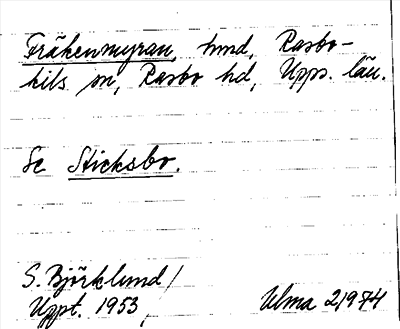 Fräkenmyran, hmd, Rasbo-
kils sn, Rasbo hd, Upps. län.
Se Sticksbo.
S. Björklund/
Uppt. 1953, Ulma 21974